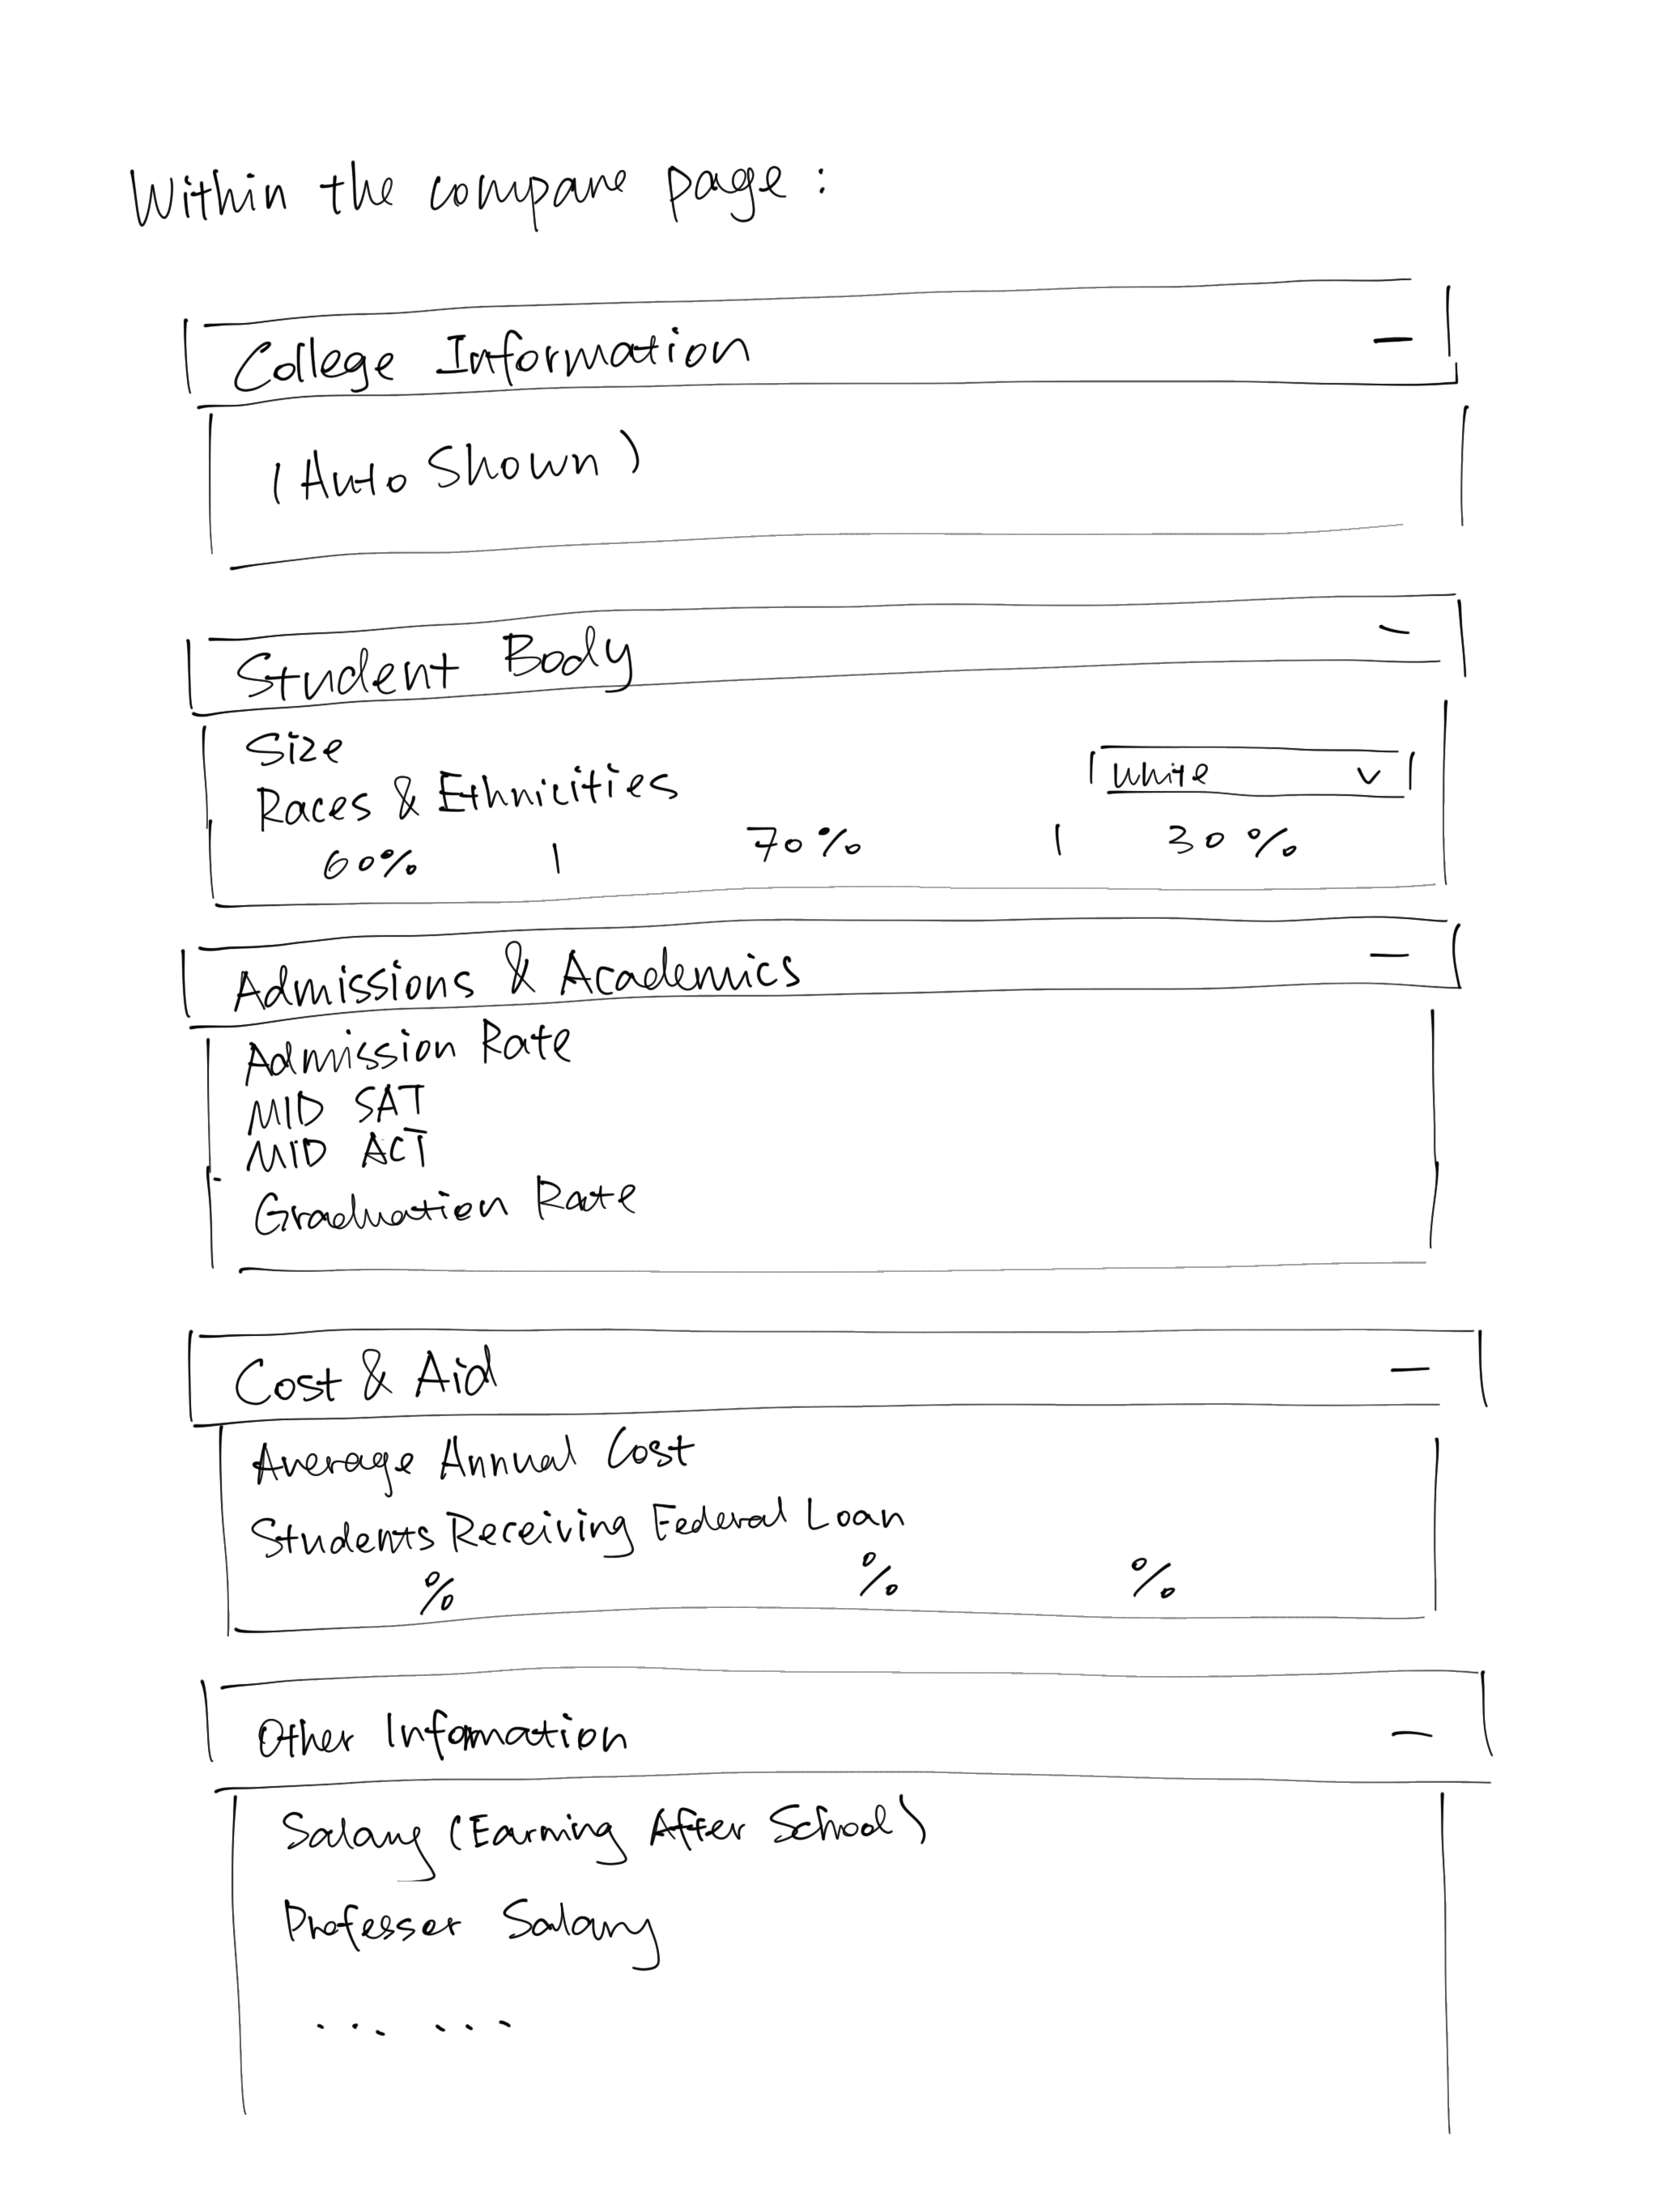 Within the compare page :
College Information —
(Auto Shown)
Student Body —
Size
Races & Ethnicities White v
60% | 70% | 30%
Admissions & Academics —
Admission Rate
MID SAT
MID ACT
Graduation Rate
Cost & Aid —
Average Annual Cost
Students Receiving Federal Loan
% % %
Other Information —
Salary (Earning After School)
Professer Salary
... ...